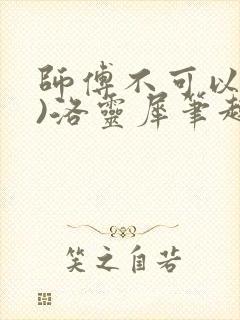 師傅不可以
)洛靈犀筆趣
笑之自若